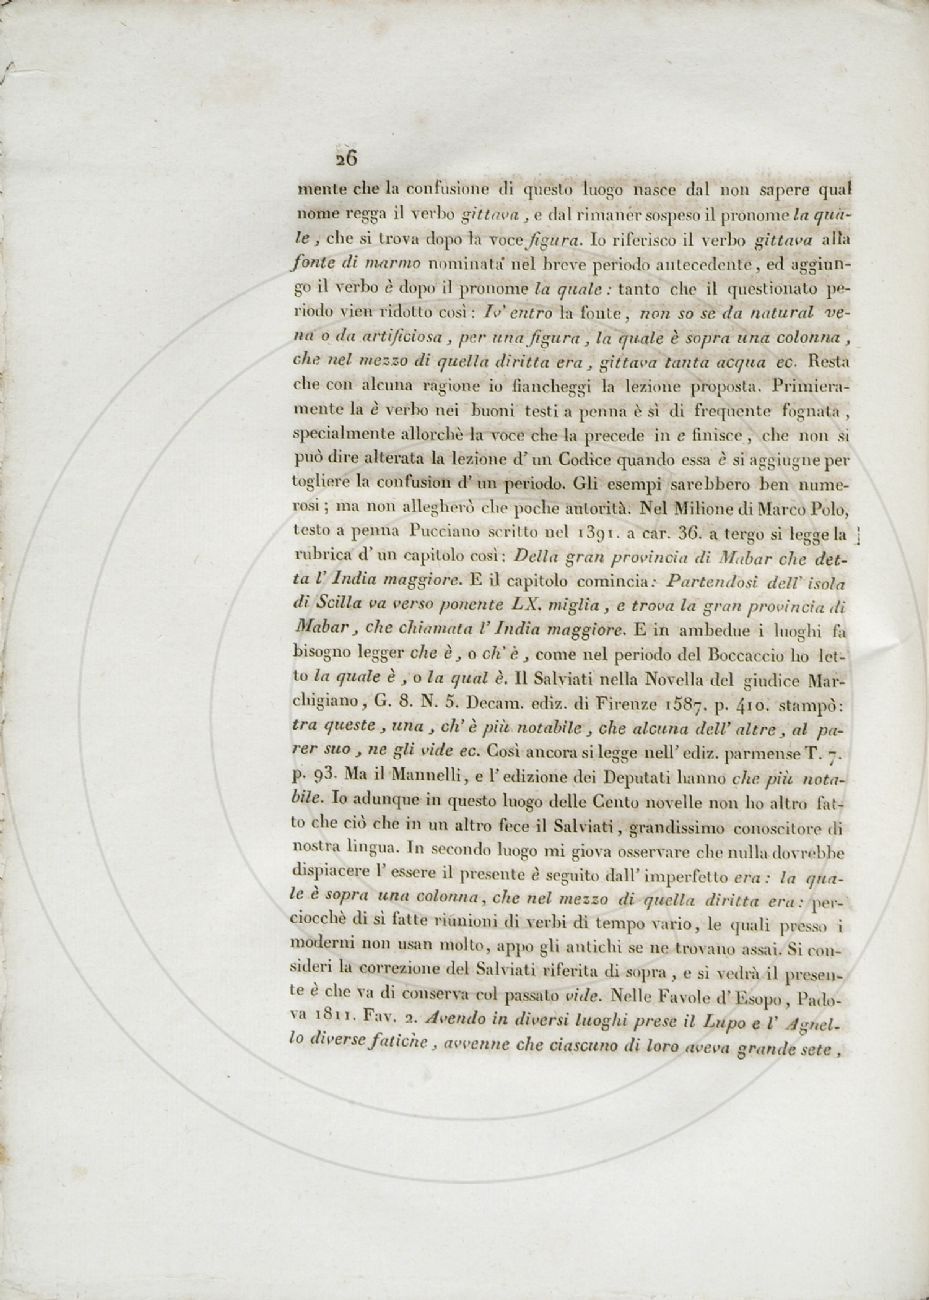 26
mente che la confusione di questo luogo nasce dal non sapere qual
nome regga il verbo gittava, e dal rimaner sospeso il pronome la qua-
le, che si trova dopo la voce figura. Io riferisco il verbo gittava alla
fonte di marmo nominata nel breve periodo antecedente, ed aggiun-
go il verbo è dopo il pronome la quale: tanto che il questionato pe-
riodo vien ridotto così: Iv' entro la fonte, non so se da natural ve-
na o da artificiosa, per una figura, la quale è sopra una colonna,
che nel mezzo di quella diritta era, gittava tanta acqua ec. Resta
che con alcuna ragione io fiancheggi la lezione proposta. Primiera-
mente la è verbo nei buoni testi a penna è sì di frequente fognata,
specialmente allorchè la voce che la precede in e finisce, che non si
può dire alterata la lezione d' un Codice quando essa è si aggiugne per
togliere la confusion d' un periodo. Gli esempi sarebbero ben nume-
rosi; ma non allegherò che poche autorità. Nel Milione di Marco Polo,
testo a penna Pucciano scritto nel 1391. a car. 36. a tergo si legge la
rubrica d' un capitolo così: Della gran provincia di Mabar che det-
ta l' India maggiore. E il capitolo comincia: Partendosi dell' isola
di Scilla va verso ponente LX. miglia, e trova la gran provincia di
Mabar, che chiamata l' India maggiore. E in ambedue i luoghi fa
bisogno legger che è, o ch' è, come nel periodo del Boccaccio ho let-
to la quale è, o la qual è. Il Salviati nella Novella del giudice Mar-
chigiano, G. 8. N. 5. Decam. ediz. di Firenze 1587. p. 410. stampò:
tra queste, una, ch' è più notabile, che alcuna dell' altre, al pa-
rer suo, ne gli vide ec. Così ancora si legge nell' ediz. parmense T. 7.
p. 93. Ma il Mannelli, e l' edizione dei Deputati hanno che più nota-
bile. Io adunque in questo luogo delle Cento novelle non ho altro fat-
to che ciò che in un altro fece il Salviati, grandissimo conoscitore di
nostra lingua. In secondo luogo mi giova osservare che nulla dovrebbe
dispiacere l' essere il presente è seguito dall' imperfetto era: la qua-
le è sopra una colonna, che nel mezzo di quella diritta era: per-
ciocchè di sì fatte riunioni di verbi di tempo vario, le quali presso i
moderni non usan molto, appo gli antichi se ne trovano assai. Si con-
sideri la correzione del Salviati riferita di sopra, e si vedrà il presen-
te è che va di conserva col passato vide. Nelle Favole d' Esopo, Pado-
va 1811. Fav. 2. Avendo in diversi luoghi prese il Lupo e l' Agnel-
lo diverse fatiche, avvenne che ciascuno di loro aveva grande sete,